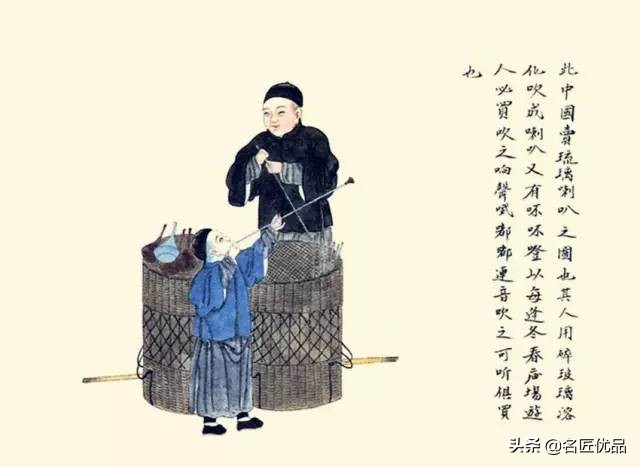 此中國賣琉璃喇叭之圖也其人用碎玻璃溶
化吹成喇叭又有噔以每逢冬春場遊
人必買吹之响聲嘟嘟連音吹之可听俱買
也
头条 @名匠优品